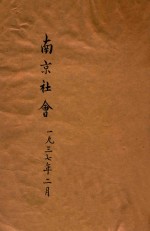 南京社會
一九三七年二月